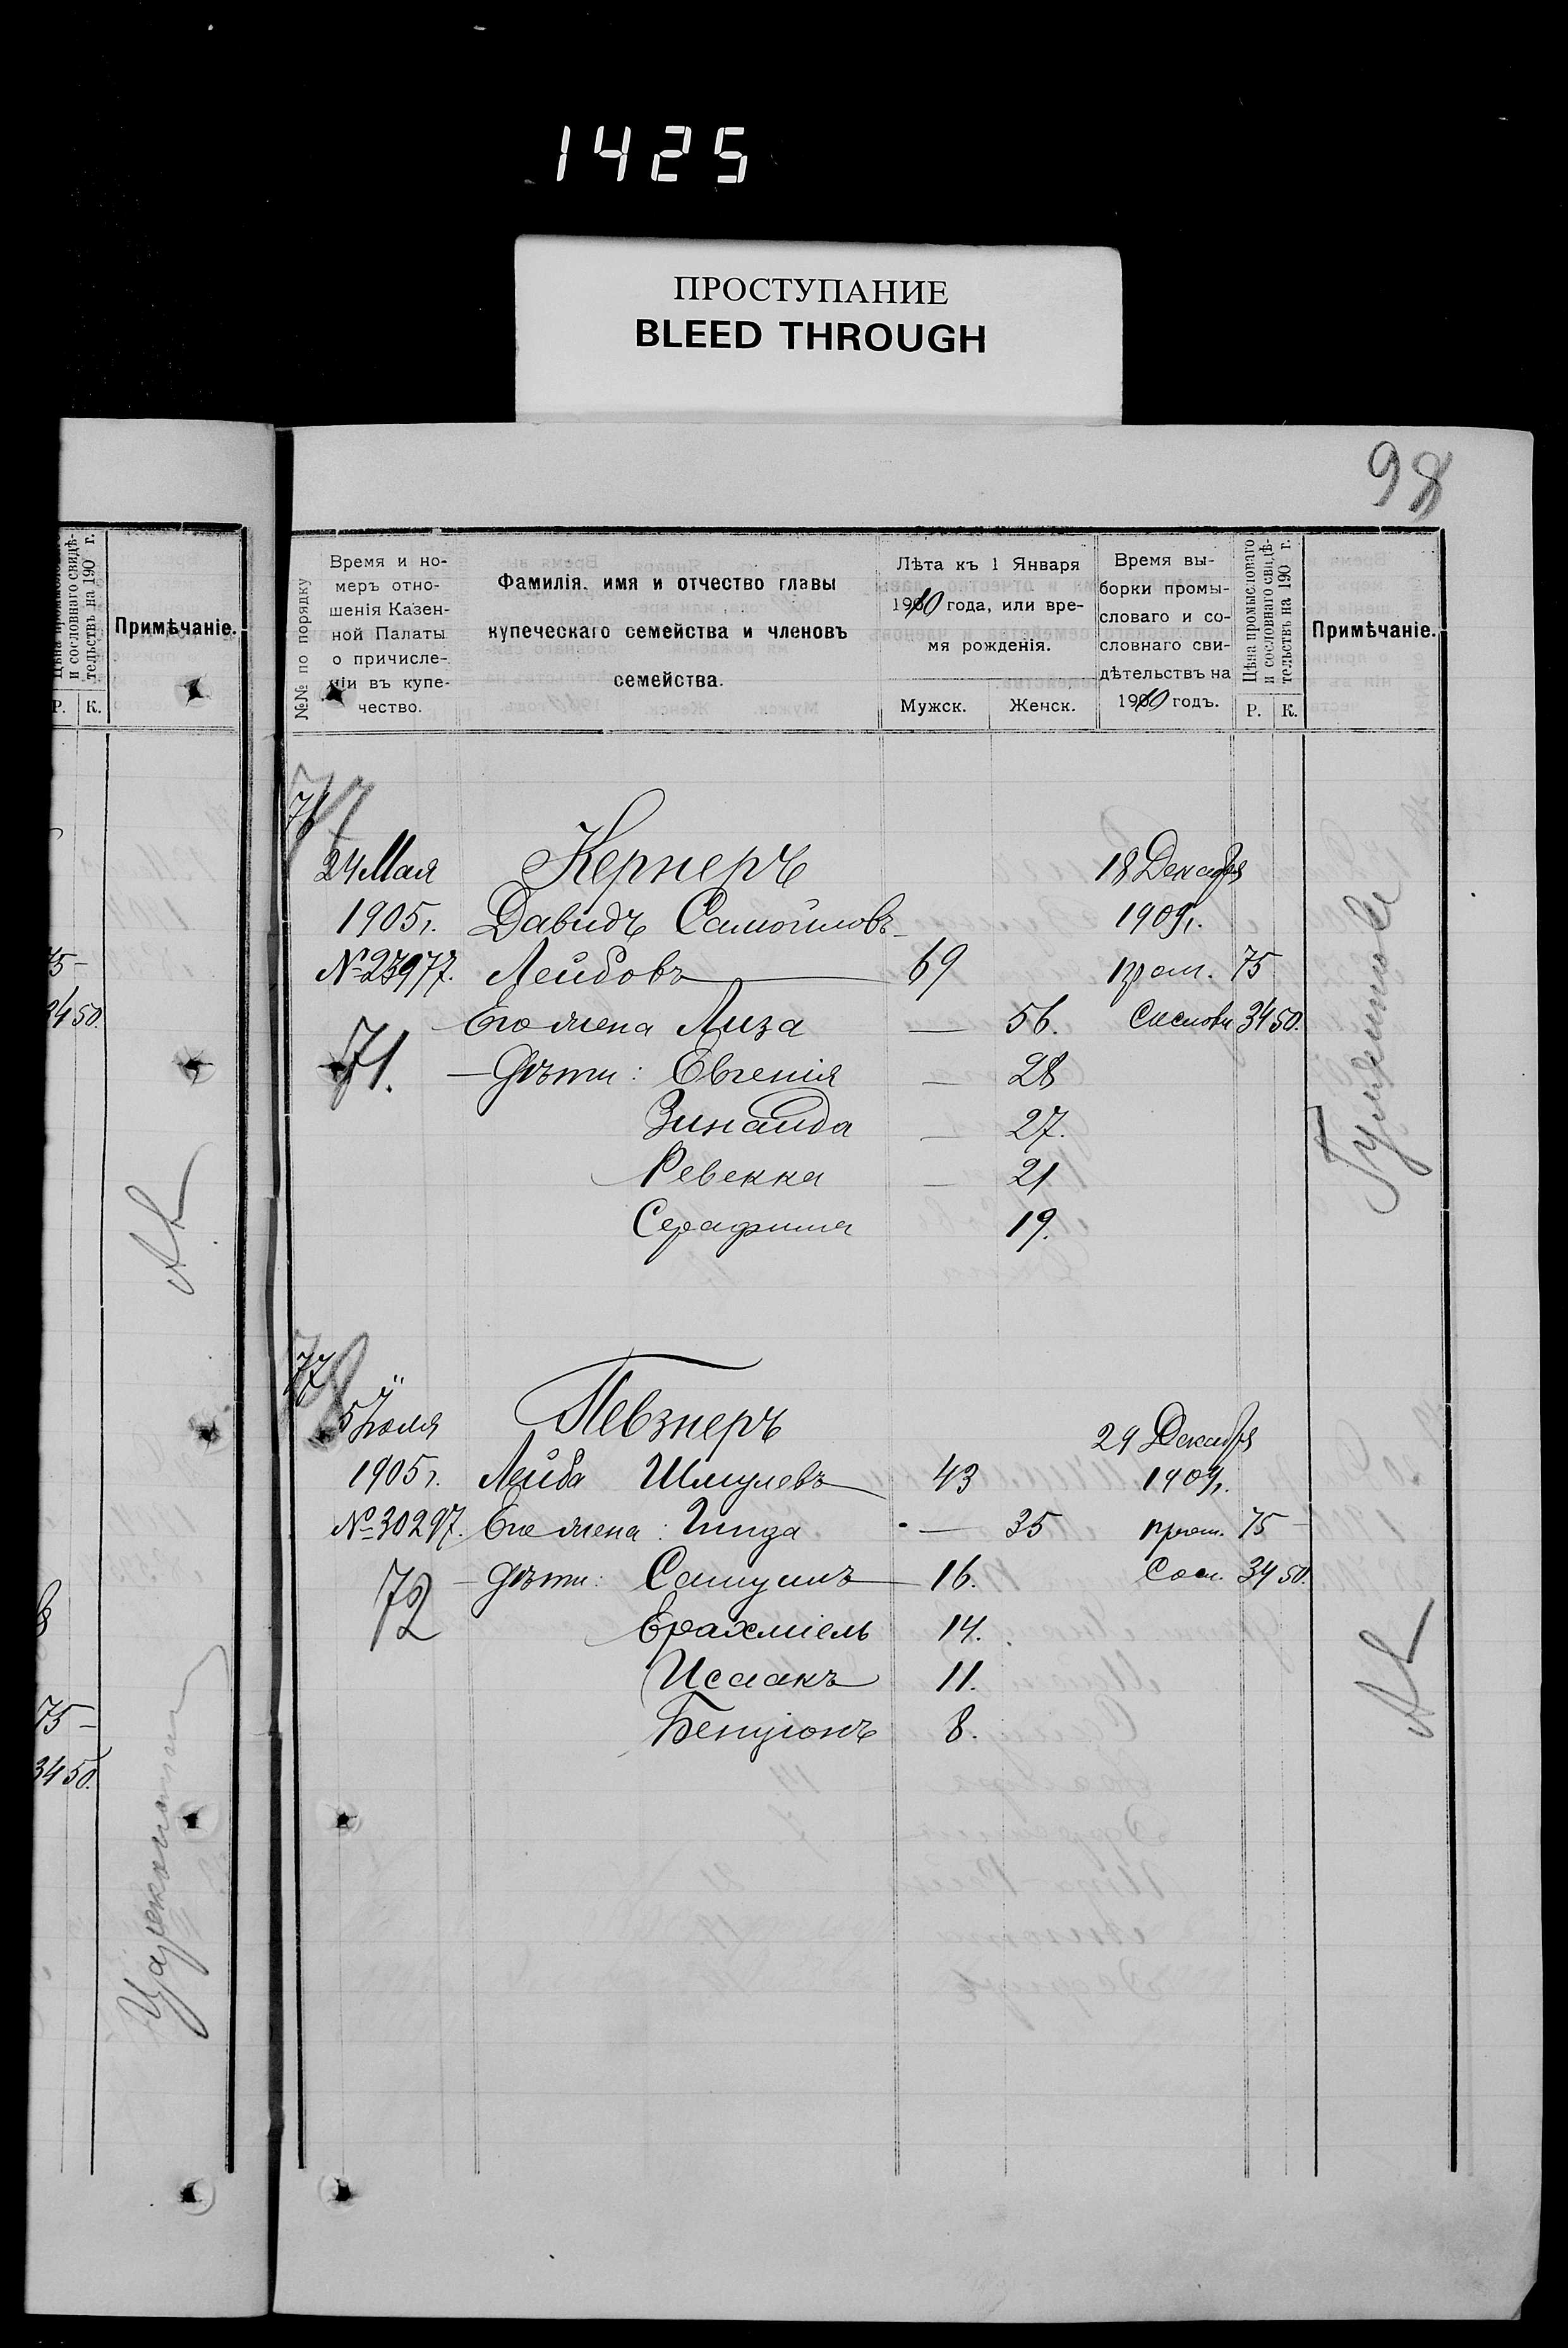 1425
ПРОСТУПАНИЕ
BLEED THROUGH
98
Цѣна промысловаго
и сословнаго свидѣ-
тельствъ на 190 г.
Р. К.
Примѣчаніе.
75 –
34 50.
75 –
34 50.
№№ по порядку
Время и но-
меръ отно-
шенія Казен-
ной Палаты
о причисле-
ніи въ купе-
чество.
Фамилія, имя и отчество главы
купеческаго семейства и членовъ
семейства.
Лѣта къ 1 Января
1910 года, или вре-
мя рожденія.
Мужск. Женск.
Время вы-
борки промы-
словаго и со-
словнаго сви-
дѣтельствъ на
1910 годъ.
Цѣна промысловаго
и сословнаго свидѣ-
тельствъ на 190 г.
Р. К.
Примѣчаніе.
24 Мая Кернеръ 18 Декабря
1905 г. Давидъ Самойловъ- 1909 г.
№ 23977. Лейбовъ 69 пром. 75
Его жена Лиза — 56. Сословн 34 50.
71. — Дѣти: Евгенія — 28
Зинаида — 27.
Ревекка — 21
Серафима 19.
5 Іюля Певзнеръ 29 Декабря
1905 г. Лейба Шмулевъ 43 1909 г.
№ 30297. Его жена: Гинда — 35 пром. 75 –
72 — Дѣти: Самуилъ 16. Сосл. 34 50.
Ерахміель 14.
Исаакъ 11.
Бенціонъ 8.